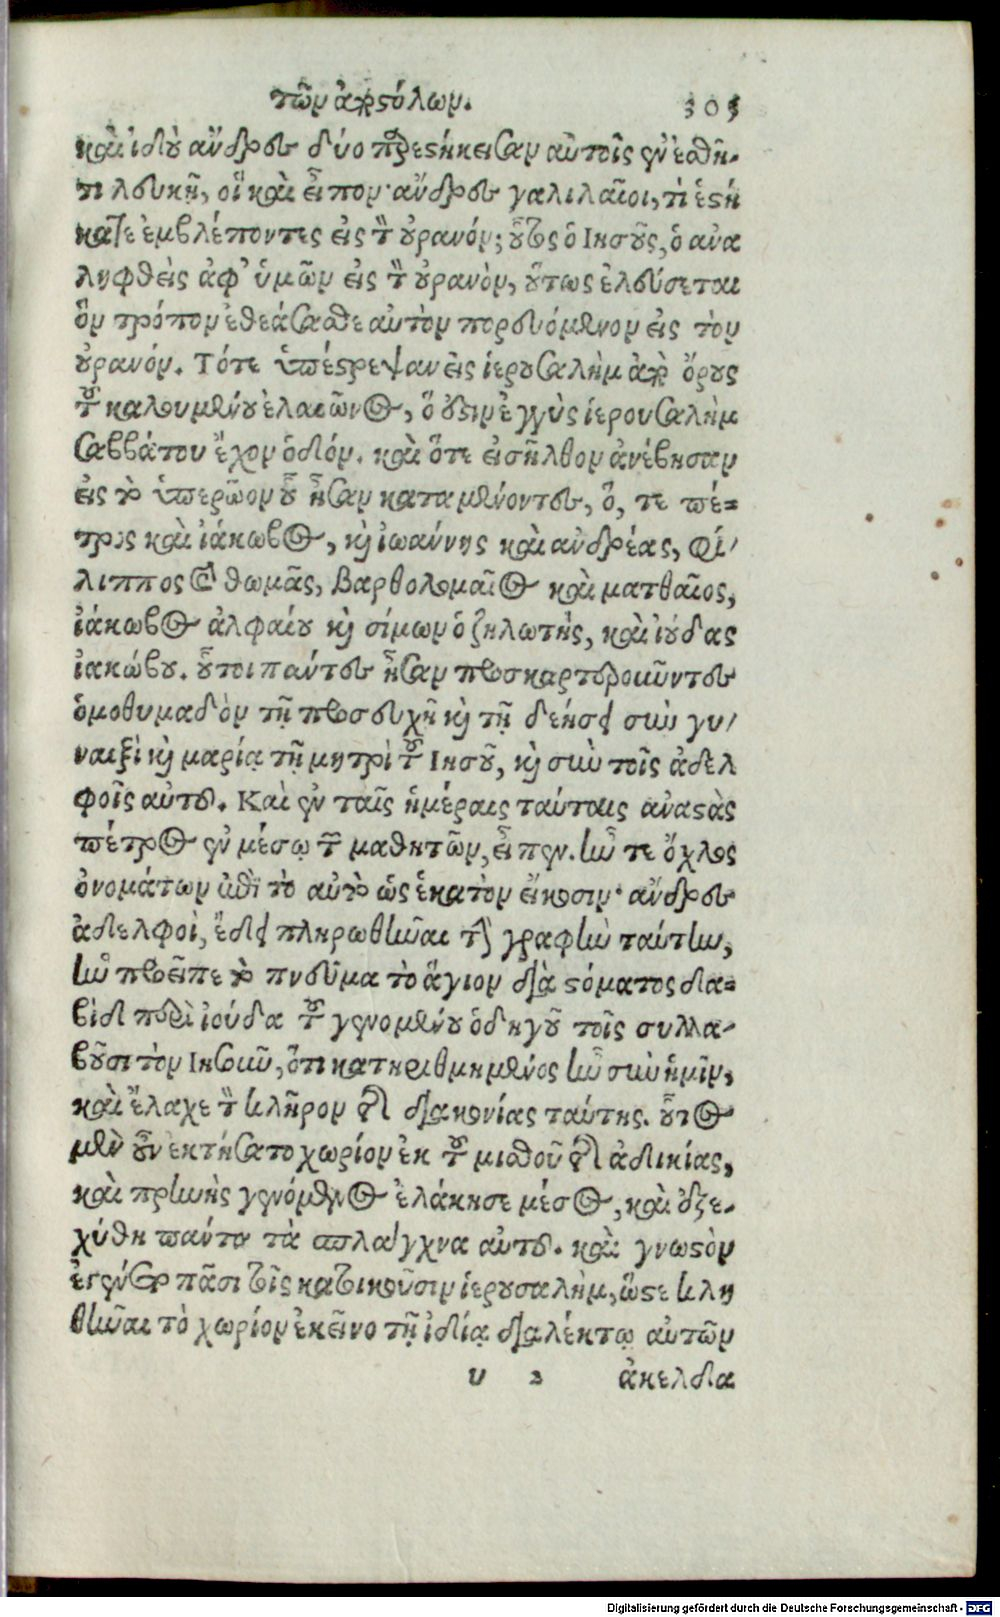 τῶν ἀποστόλων. 305
καὶ ἰδοὺ ἄνδρες δύο παρειστήκεισαν αὐτοῖς ἐν ἐσθῆ-
τι λευκῇ, οἳ καὶ εἶπον· ἄνδρες γαλιλαῖοι, τί ἑστή
κατε ἐμβλέποντες εἰς τὸν οὐρανόν; οὗτος ὁ Ιησοῦς, ὁ ανα
ληφθεὶς ἀφ’ ὑμῶν εἰς τὸν οὐρανὸν, οὕτως ἐλεύσεται
ὃν τρόπον ἐθεάσασθε αυτὸν πορευόμενον εἰς τὸν
οὐρανόν. Τότε ὑπέστρεψαν εἰς ἱερουσαλὴμ ἀπὸ ὄρους
τοῦ καλουμένου ἐλαιῶνος, ὅ ἐστιν ἐγγὺς ἱερουσαλὴμ
σαββάτου ἔχον ὁδόν. καὶ ὅτε εἰσῆλθον ἀνέβησαν
εἰς τὸ ὑπερῶον οὗ ἦσαν καταμένοντες, ὅ, τε πέ-
τρος καὶ ἰάκωβος, καὶ ἰωαννης καὶ ανδρέας, φί/
λιππος καὶ θωμᾶς, βαρθολομαῖος καὶ ματθαῖος,
ἰάκωβος ἀλφαίου καὶ σίμων ὁ ζηλωτὴς, καὶ ἰούδας
ἰακώβου. οὗτοι πάντες ἦσαν προσκαρτεροῦντες
ὁμοθυμαδὸν τῇ προσευχῇ καὶ τῇ δεήσει σὺν γυ/
ναιξὶ καὶ μαρίᾳ τῇ μητρὶ τοῦ Ιησοῦ, καὶ σὺν τοῖς ἀδελ
φοῖς αὐτοῦ. Καὶ ἐν ταῖς ἡμέραις ταύταις αναστὰς
πέτρος ἐν μέσῳ τῶν μαθητῶν, εἶπεν. ἦν τε ὄχλος
ὀνομάτων ἐπὶ τὸ αὐτὸ ὡς ἑκατὸν εἴκοσιν· ἄνδρες
ἀδελφοὶ, ἔδει πληρωθῆναι τὴν γραφὴν ταύτην,
ἣν προεῖπε τὸ πνεῦμα τὸ ἅγιον διὰ στόματος δα-
βὶδ περὶ ἰούδα τοῦ γενομένου ὁδηγοῦ τοῖς συλλα-
βοῦσι τὸν Ιησοῦν, ὅτι κατηριθμημένος ἦν σὺν ἡμῖν,
καὶ ἔλαχε τὸν κλῆρον τῆς διακονίας ταύτης. οὗτος
μὲν οὖν ἐκτήσατο χωρίον ἐκ τοῦ μισθοῦ τῆς ἀδικίας,
καὶ πρηνὴς γενόμενος ἐλάκησε μέσος, καὶ ἐξε-
χύθη πάντα τὰ σπλάγχνα αὐτοῦ. καὶ γνωστὸν
ἐγένετο πᾶσι τοῖς κατοικοῦσιν ἱερουσαλὴμ, ὥστε κλη
θῆναι τὸ χωρίον ἐκεῖνο τῇ ἰδίᾳ διαλέκτῳ αὐτῶν
υ 2 ἀκελδα
Digitalisierung gefördert durch die Deutsche Forschungsgemeinschaft - DFG